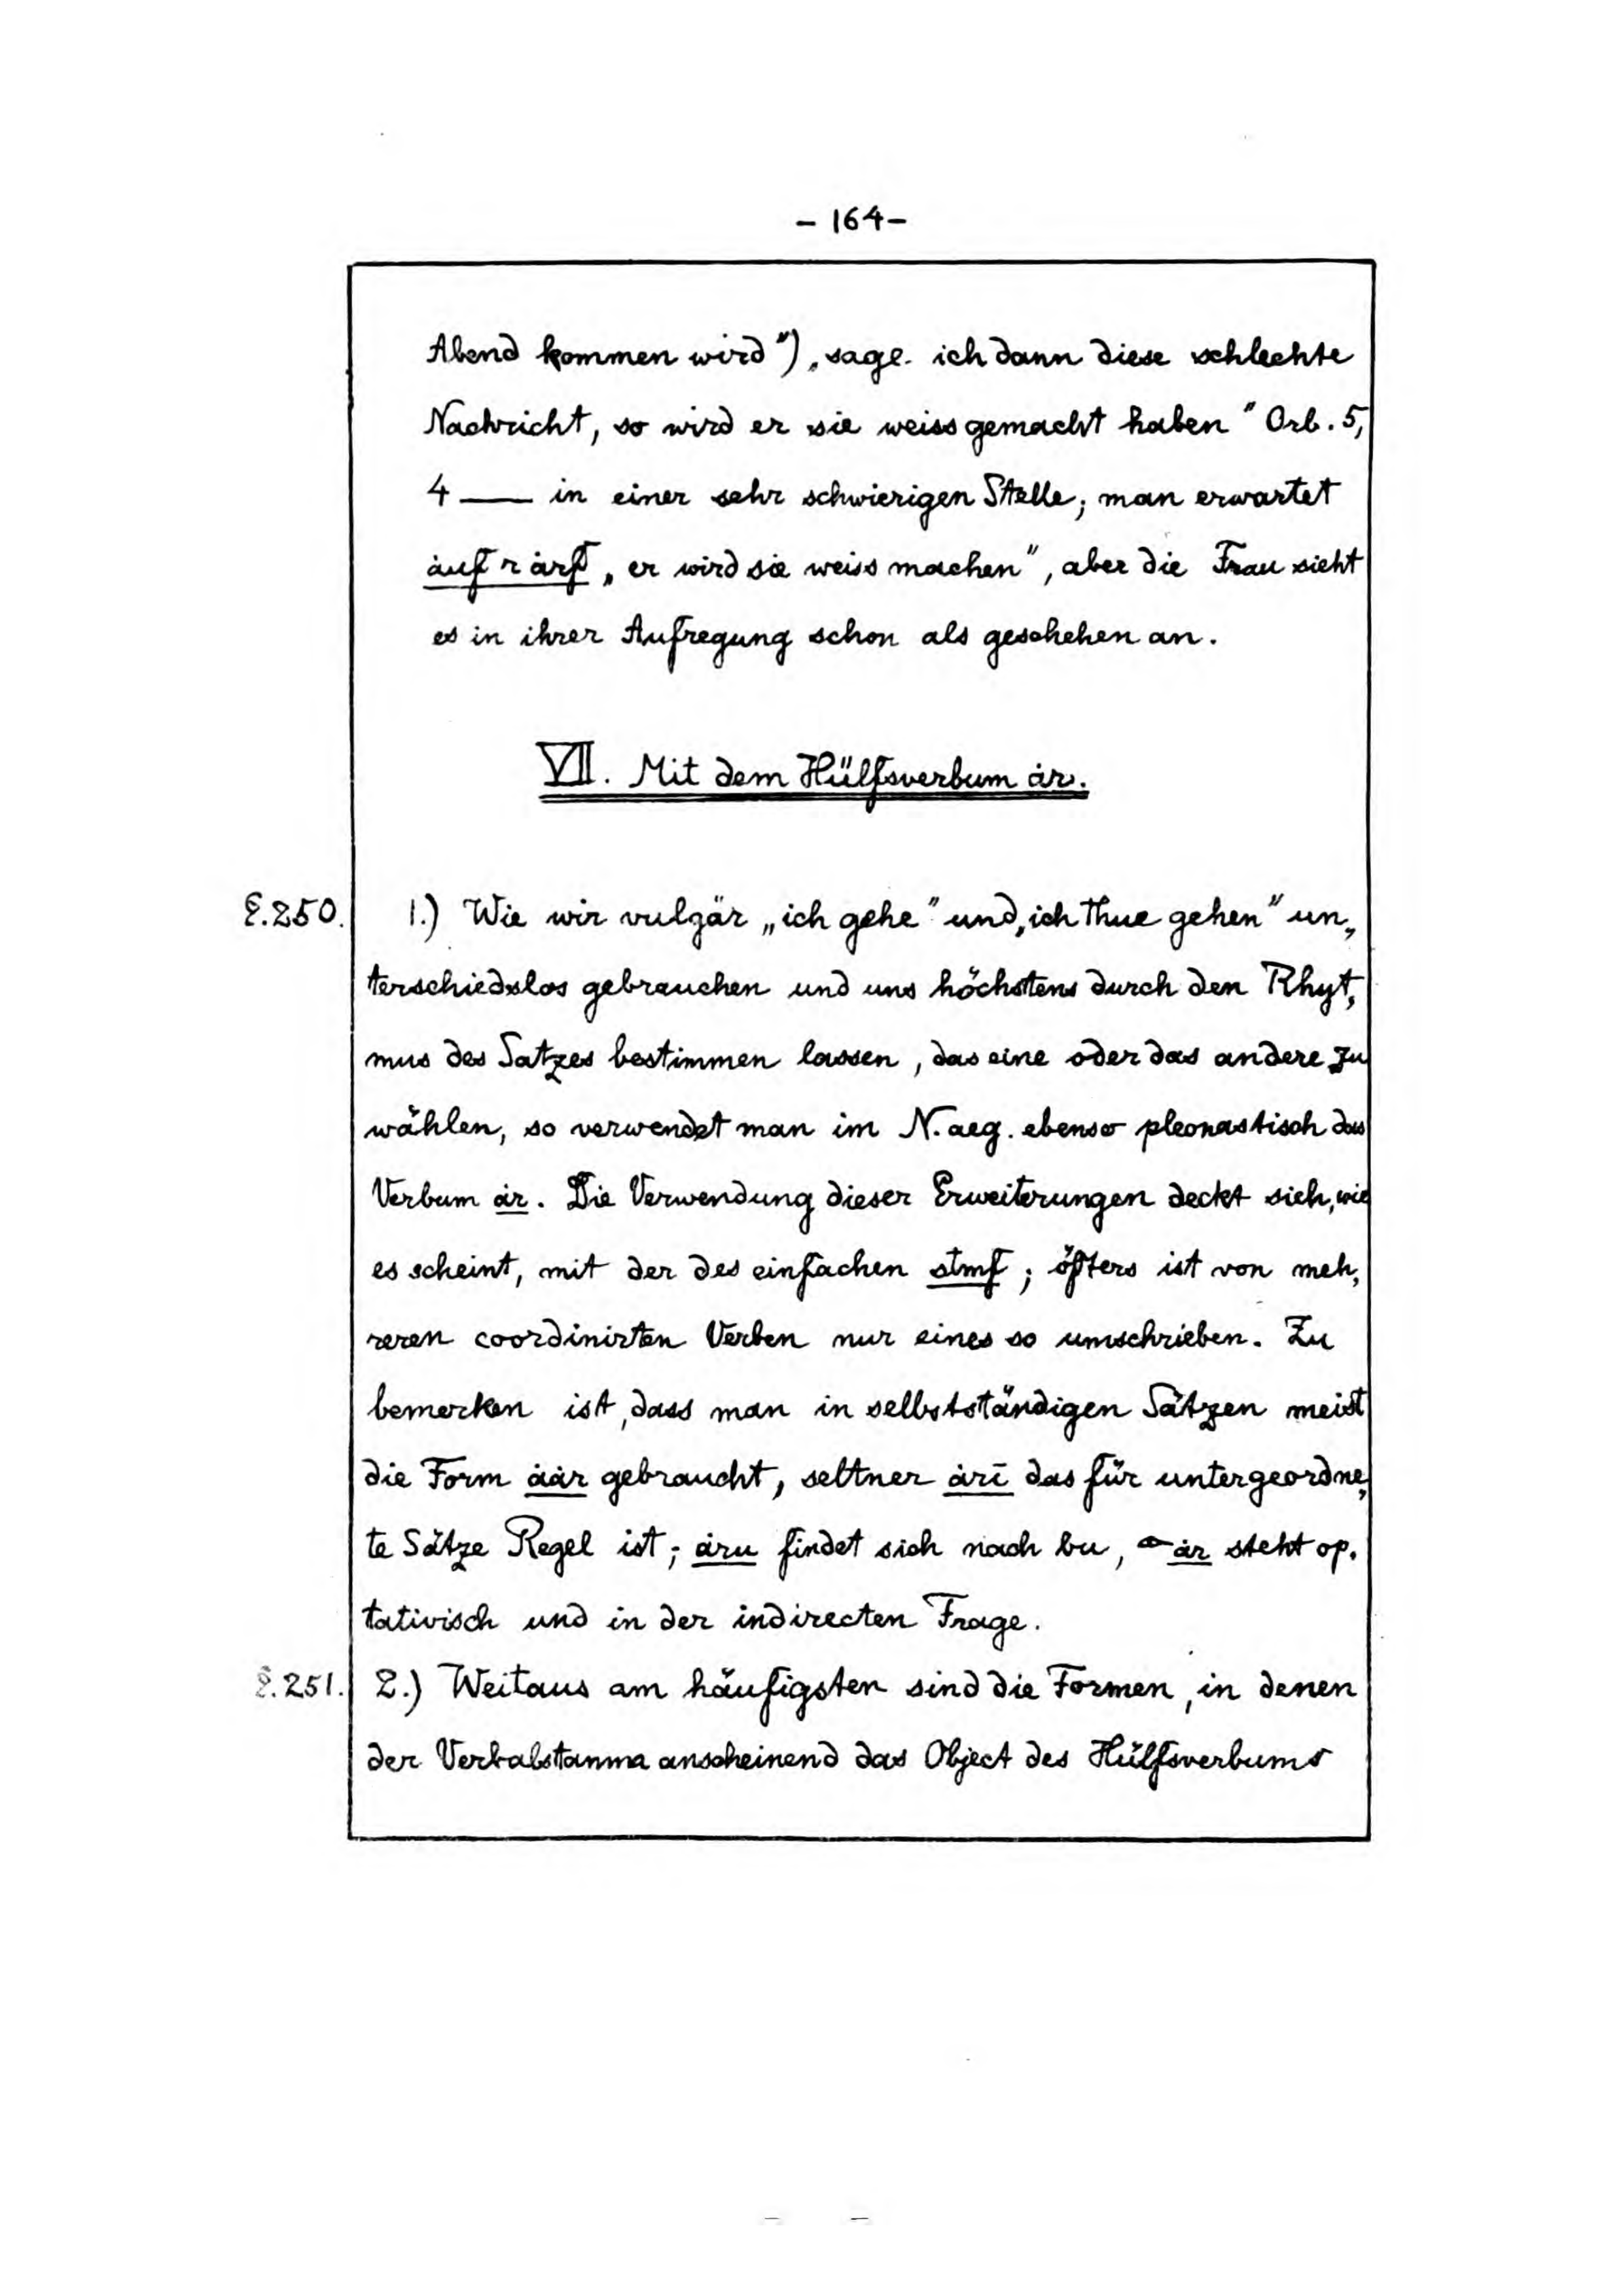 - 164 -
Abend kommen wird") „sage ich dann diese schlechte
Nachricht, so wird er sie weiss gemacht haben" Orb. 5,
4 — in einer sehr schwierigen Stelle; man erwartet
ȧuf r ȧrf „er wird sie weiss machen", aber die Frau sieht
es in ihrer Aufregung schon als geschehen an.
VII. Mit dem Hülfsverbum ȧr.
§.250. 1.) Wie wir vulgär „ich gehe" und „ich thue gehen" un„
terschiedslos gebrauchen und uns höchstens durch den Rhyt„
mus des Satzes bestimmen lassen, das eine oder das andere zu
wählen, so verwendet man im N.aeg. ebenso pleonastisch das
Verbum ȧr. Die Verwendung dieser Erweiterungen deckt sich, wie
es scheint, mit der des einfachen stmf; öfters ist von meh„
reren coordinirten Verben nur eines so umschrieben. Zu
bemerken ist, dass man in selbstständigen Sätzen meist
die Form ȧȧr gebraucht, seltner ȧrī das für untergeordne„
te Sätze Regel ist; ȧru findet sich nach bu, 𓂋 ȧr steht op„
tativisch und in der indirecten Frage.
§.251. 2.) Weitaus am häufigsten sind die Formen, in denen
der Verbalstamma anscheinend das Object des Hülfsverbums